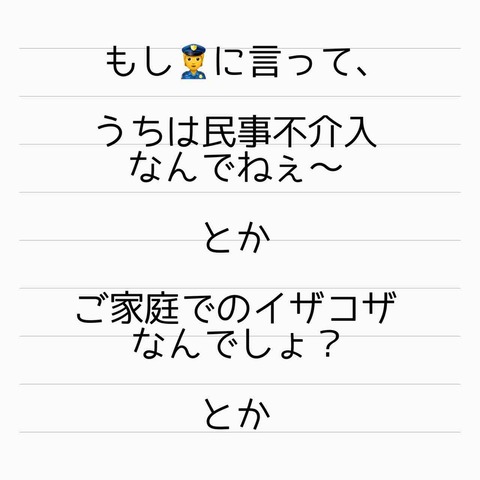 もし👮に言って、
うちは民事不介入
なんでねぇ〜
とか
ご家庭でのイザコザ
なんでしょ？
とか